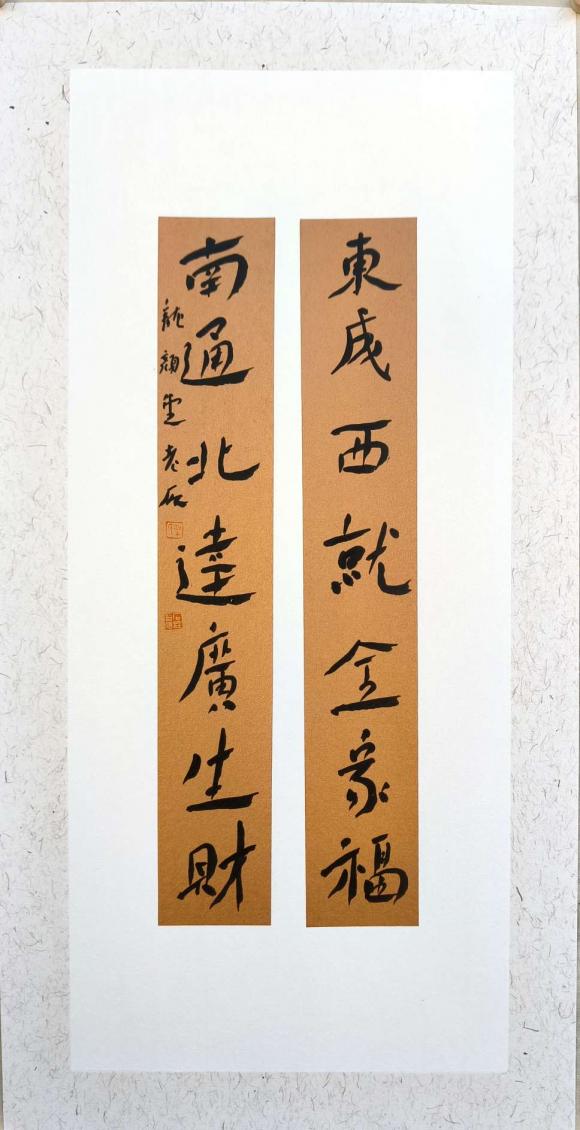 東成西就全家福
南通北達廣生財
龍顏堂老石